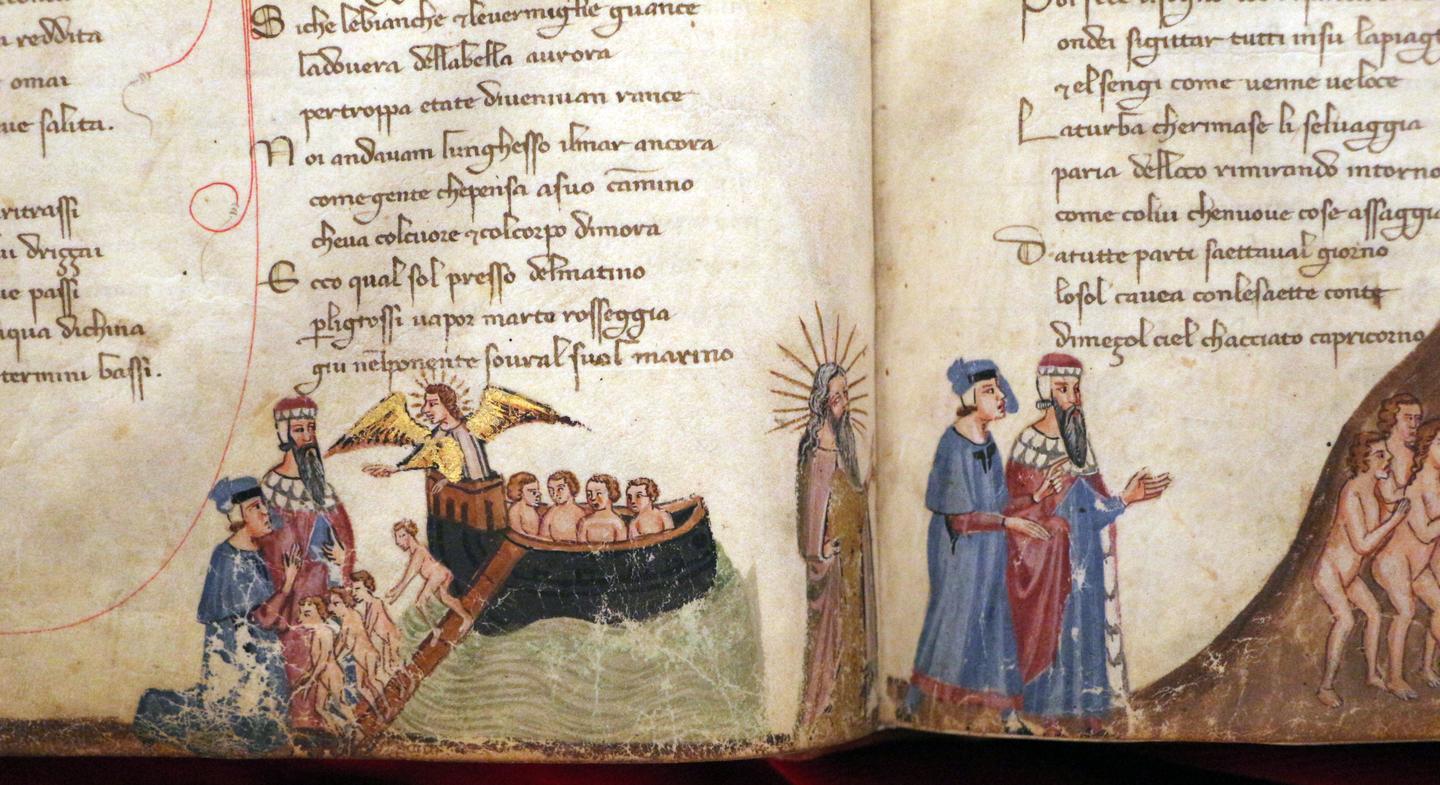 reddita
omai
ue salita.
ritrassi
drizzai
ue passi
qua dichina
termini bassi.
Siche lebianche ⁊ leuermiglie guance
ladouera dellabella aurora
pertroppa etate diueniuan rance
Noi andauam lunghesso ilmar ancora
come gente chepensa asuo camino
cheua colcuore ⁊ colcorpo dimora
Ecco qual sol presso delmatino
pligrossi uapor marte rosseggia
giu nelponente soural suol marino
ondei sigittar tutti insu lapiagg
⁊ elsengi come uenne ueloce
Laturba cherimase li seluaggia
paria delloco rimirando intorno
come colui chenuoue cose assaggia
Datutte parti saettaual giorno
losol cauea conlesaette conte
dimezol ciel chacciato capricorno